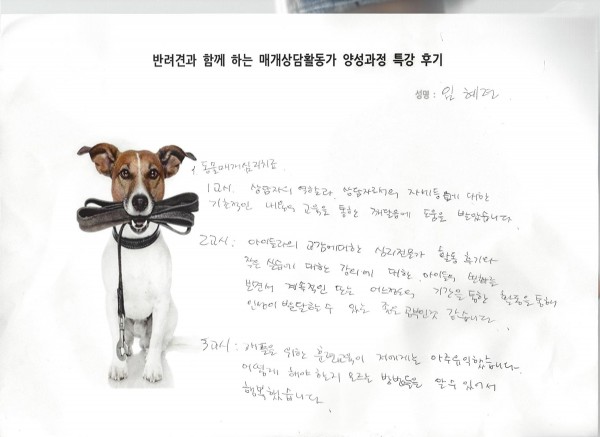 반려견과 함께 하는 매개상담활동가 양성과정 특강 후기
성명 : 임 혜련
동물매개심리치료
1교시. 상담자의 역할과 상담자로서의 자세 등에 대한
기초적인 내용의 교육을 통한 깨달음에 도움을 받았습니다.
2교시 : 아이들과의 교감에 대한 심리전문가 활동 후기와
작은 실습에 대한 강의에 대한 아이들의 변화를
보면서 계속적인 또는 어느정도의 기간을 통한 활동을 통해
인성이 발달할 수 있는 좋은 것 같습니다
3교시 : 를 위한 훈련교육이 저에게는 아주 유익했습니다.
어떻게 해야 하는지 모르는 방법들을 알 수 있어서
행복했습니다.